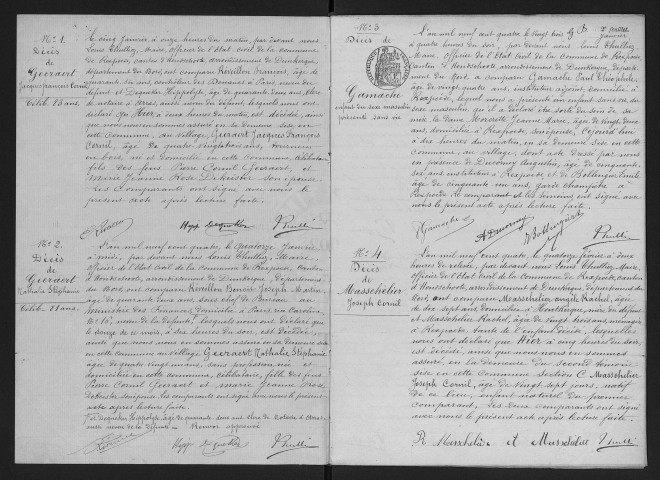 N° 1.
Décès
de
Geeraert
Jacques François Cornil
Célib. 83 ans.
Le cinq Janvier, à onze heures du matin, par devant nous
Louis Thulliez, Maire, officier de l'Etat civil de la commune
de Rexpoëde, canton d'Hondschoote, arrondissement de Dunkerque,
département du Nord, ont comparu Revillon François, âgé de
quarante six ans, domicilié à Paris, neveu du
défunt et Dequeker Hippolyte, âgé de quarante deux ans, clerc
de notaire à Arras, aussi neveu du défunt, lesquels nous ont
déclaré que Hier, à onze heures du matin, est décédé, ainsi
que nous nous en sommes assuré en sa demeure sise en
cette Commune, au village, Geeraert Jacques François
Cornil, âgé de quatre vingt trois ans, tourneur
en bois, né et domicilié en cette commune, célibataire
fils des feus Pierre Cornil Geeraert, et
Marie Jeanne Rose Dekeister son épouse.
Les Comparants ont signé avec nous le
présent acte après lecture faite.
Hipp Dequeker
Thulliez
N° 2.
Décès
de
Geeraert
Nathalie Stéphanie
Célib. 81 ans.
L'an mil neuf cent quatre, le quatorze Janvier
à midi, par devant nous Louis Thulliez, Maire,
officier de l'Etat civil de la Commune de Rexpoëde, Canton
d'Hondschoote, arrondissement de Dunkerque, Département
du Nord, ont comparu Revillon Joseph
âgé de quarante deux ans, sous chef de Bureau au
ministère des Finances, domicilié à Paris, rue Caroline
N° 16, neveu de la défunte, lesquels nous ont déclaré que
le douze de ce mois, à dix heures du soir est décédée,
ainsi que nous nous en sommes assuré en sa demeure sise
en cette commune au village Geeraert Nathalie Stéphanie
âgée de quatre vingt un ans, sans profession, née et
domiciliée en cette commune, célibataire, fille des feus
Pierre Cornil Geeraert et Marie Jeanne Rose
Dekeister son épouse. Les comparants ont signé avec nous le présent
acte après lecture faite.
Et Dequeker Hippolyte, âgé de quarante deux ans clerc de Notaire à Arras
aussi neveu de la défunte. Renvoi approuvé
Hipp Dequeker
Thulliez
N° 3
Décès de
Gamache
enfant du sexe masculin
présenté sans vie
2e feuillet
L'an mil neuf cent quatre le vingt trois Janvier
à quatre heures du soir, par devant nous Louis Thulliez
Maire, officier de l'Etat civil de la Commune de Rexpoëde,
Canton d'Hondschoote, arrondissement de Dunkerque, département
du Nord, a comparu Gamache Paul Théophile,
âgé de vingt huit ans, instituteur adjoint, domicilié à
Rexpoëde, lequel nous a présenté un enfant sans vie, du
sexe masculin, qu'il a déclaré être sorti du sein de sa
mère la Dame Jeanne Marie, âgée de vingt deux
ans, domiciliée à Rexpoëde, son épouse, Cejourd'hui
à dix heures du matin, en sa demeure sise en cette
commune, au village, dont acte dressé par nous en
présence de Decorny Augustin, âgé de cinquante
six ans, instituteur à Rexpoëde et de Bollengier Emile
âgé de cinquante un ans, garde champêtre à
Rexpoëde. Le comparant et les témoins ont signé avec
nous le présent acte après lecture faite.
Gamache
A Decorny
Bollengier
Thulliez
N° 4
Décès
de
Masschelier
Joseph Cornil
L'an mil neuf cent quatre, le quatorze
heures de relevée, par devant nous Louis Thulliez, Maire,
officier de l'Etat civil de la Commune de Rexpoëde, canton
d'Hondschoote, arrondissement de Dunkerque, département du
Nord, ont comparu Masschelier Angèle Rachel, âgée
de dix sept ans, domiciliée à Houtkerque, mère du défunt
et Masschelier Rachel, âgée de vingt trois ans, ménagère
à Rexpoëde, tante de l'enfant décédé, lesquelles
nous ont déclaré que Hier à cinq heures du soir,
est décédé, ainsi que nous nous en sommes
assuré, en sa demeure du Second témoin
sise en cette Commune section C, Masschelier
Joseph Cornil, âgé de vingt sept jours, natif
de ce lieu, enfant naturel du premier
comparant. Les deux comparants ont signé
avec nous le présent acte après lecture faite.
R Masschelier et Masschelier Thulliez